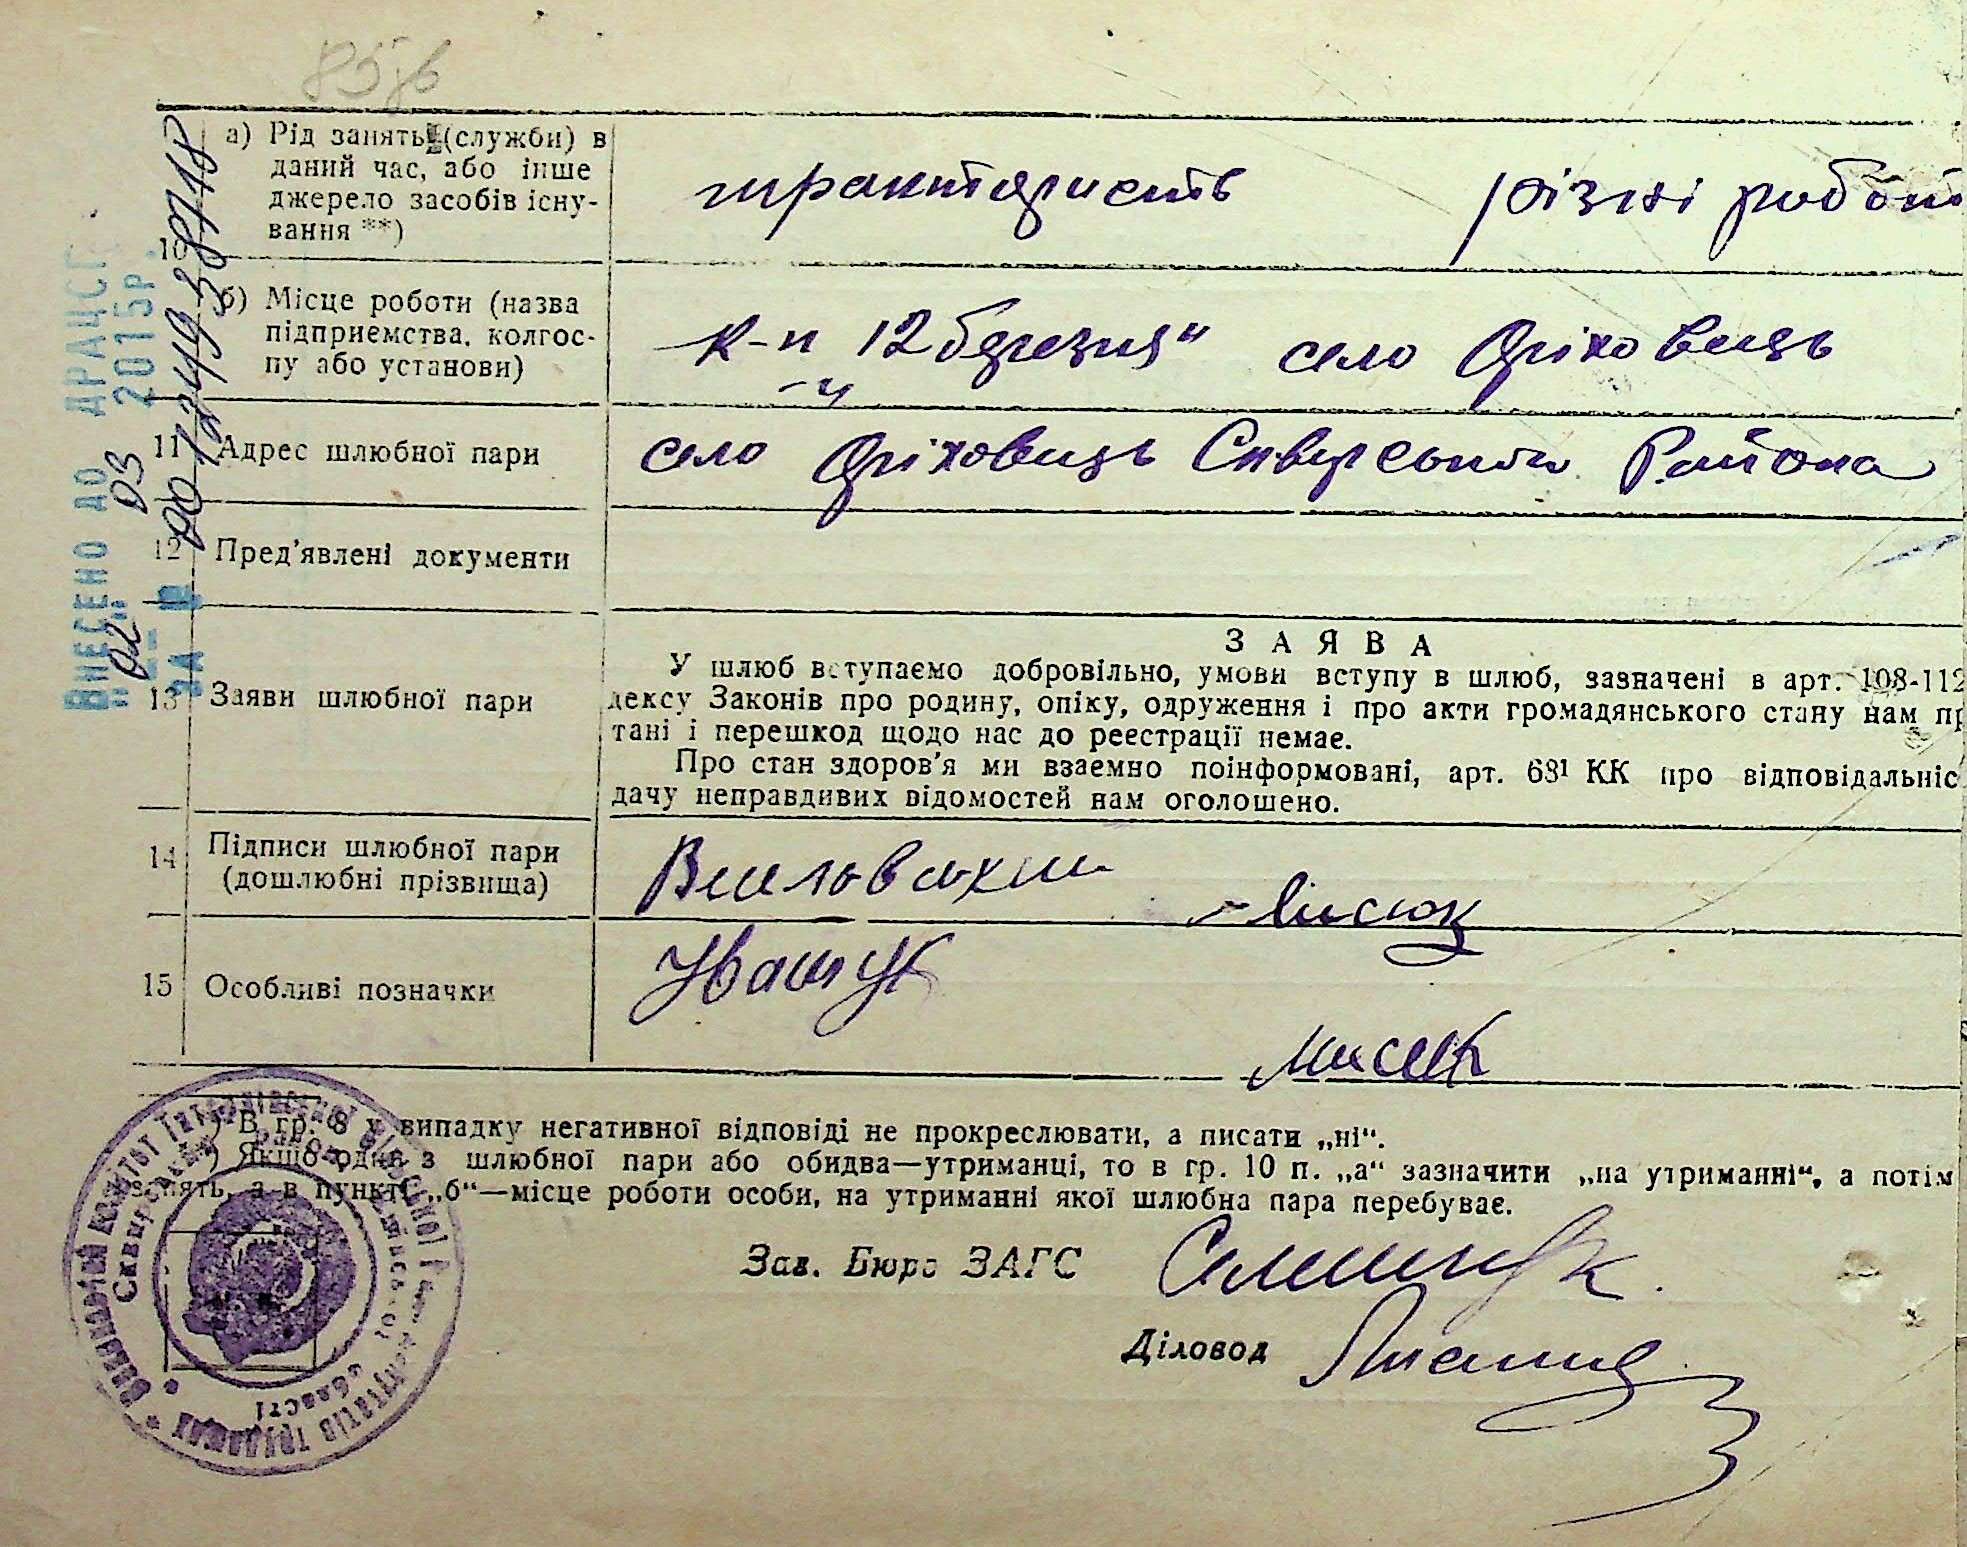 а) Рід занять (служби) в
даний час, або інше
джерело засобів існу-
вання **)
10
трактористь
різні робот
б) Місце роботи (назва
підприемства, колгос-
пу або установи)
к-п "12 березня" село Оріховець
11 Адрес шлюбної пари
село Оріховець Сквирського Района
12 Пред'явлені документи
13 Заяви шлюбної пари
ЗАЯВА
У шлюб вступаємо добровільно, умови вступу в шлюб, зазначені в арт. 108-112
дексу Законів про родину, опіку, одруження і про акти громадянського стану нам пр
тані і перешкод щодо нас до реестрації немае.
Про стан здоров'я ми взаемно поінформовані, арт. 68¹ КК про відповідальніс
дачу неправдивих відомостей нам оголошено.
14 Підписи шлюбної пари
(дошлюбні прізвища)
15 Особливі позначки
Івашук
) В гр. 8 у випадку негативної відповіді не прокреслювати, а писати „ні“.
) Якщо один з шлюбної пари або обидва—утриманці, то в гр. 10 п. „а“ зазначити „на утриманні“, а потім
занять, а в пункті „б“—місце роботи особи, на утриманні якої шлюбна пара перебуває.
Зав. Бюро ЗАГС
Діловод
ВНЕСЕНО ДО ДРАЦСГ
"02" 03 2015р.
ЗА №